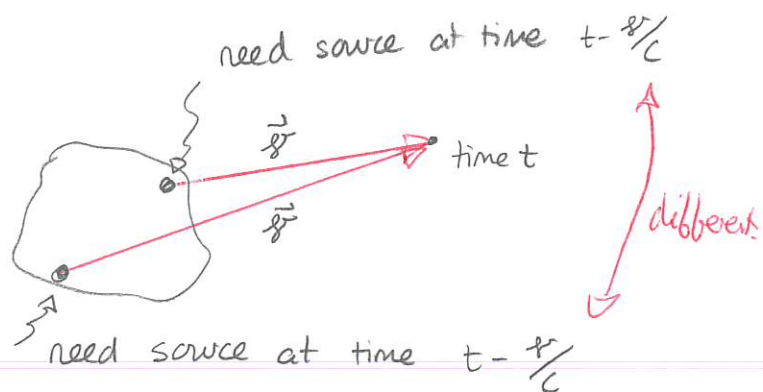 need source at time t - 𝓇/c
𝓇⃗
time t
𝓇⃗
different.
need source at time t - 𝓇/c